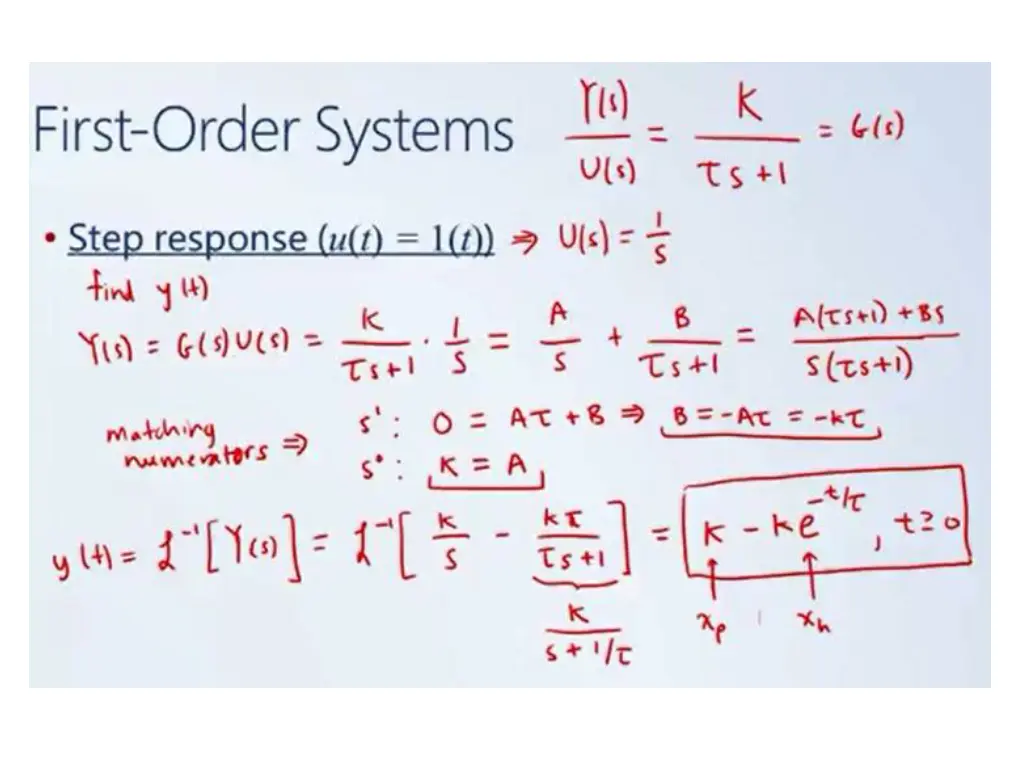 First-Order Systems Y(s)/U(s) = K/(τs+1) = G(s)
• Step response (u(t) = 1(t)) ⇒ U(s) = 1/s
find y(t)
Y(s) = G(s)U(s) = K/(τs+1) · 1/s = A/s + B/(τs+1) = (A(τs+1) + Bs)/(s(τs+1))
matching numerators ⇒ s¹: 0 = Aτ + B ⇒ B = -Aτ = -kτ
s⁰: K = A
y(t) = ℒ⁻¹[Y(s)] = ℒ⁻¹[k/s - kτ/(τs+1)] = k - ke^(-t/τ), t ≥ 0
K/(s + 1/τ)
xₚ xₕ